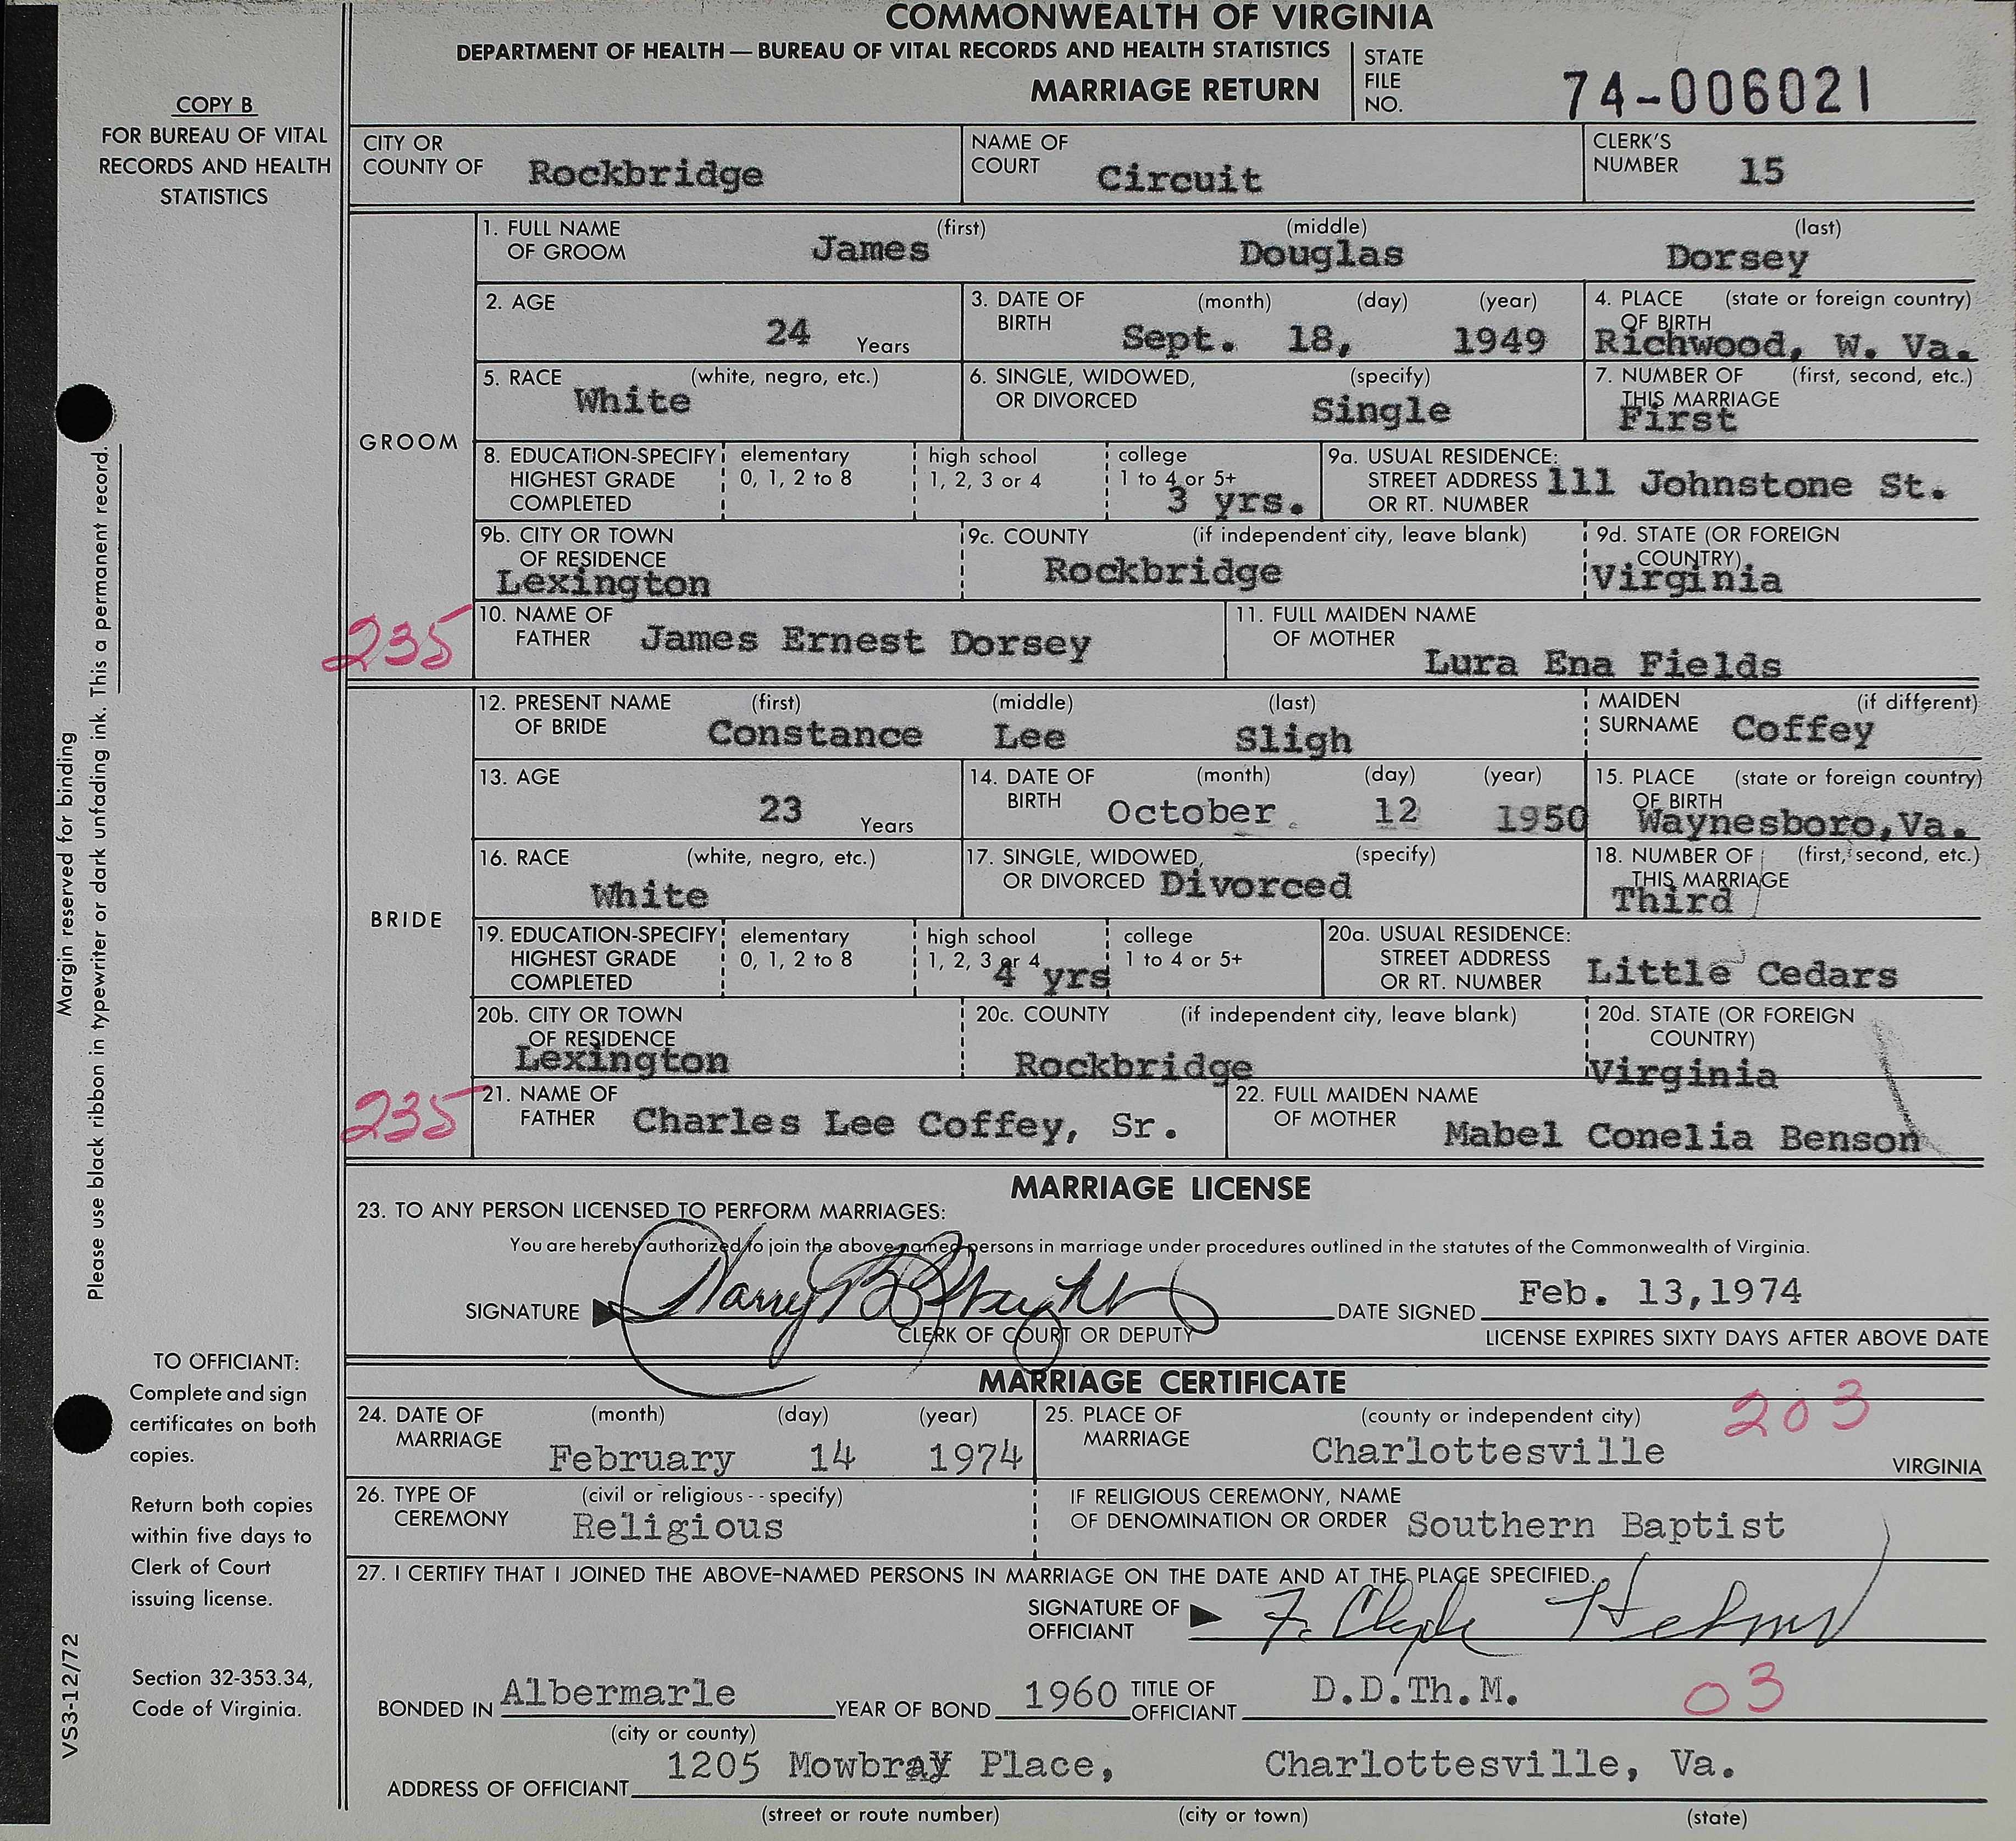 COMMONWEALTH OF VIRGINIA
DEPARTMENT OF HEALTH — BUREAU OF VITAL RECORDS AND HEALTH STATISTICS
MARRIAGE RETURN
STATE FILE NO. 74-006021
COPY B
FOR BUREAU OF VITAL
RECORDS AND HEALTH
STATISTICS
CITY OR COUNTY OF Rockbridge NAME OF COURT Circuit CLERK'S NUMBER 15
GROOM
1. FULL NAME OF GROOM (first) James (middle) Douglas (last) Dorsey
2. AGE 24 Years 3. DATE OF BIRTH (month) (day) (year) Sept. 18, 1949 4. PLACE OF BIRTH (state or foreign country) Richwood, W. Va.
5. RACE (white, negro, etc.) White 6. SINGLE, WIDOWED, OR DIVORCED (specify) Single 7. NUMBER OF THIS MARRIAGE (first, second, etc.) First
8. EDUCATION-SPECIFY HIGHEST GRADE COMPLETED elementary 0, 1, 2 to 8 high school 1, 2, 3 or 4 college 1 to 4 or 5+ 3 yrs. 9a. USUAL RESIDENCE: STREET ADDRESS OR RT. NUMBER 111 Johnstone St.
9b. CITY OR TOWN OF RESIDENCE Lexington 9c. COUNTY (if independent city, leave blank) Rockbridge 9d. STATE (OR FOREIGN COUNTRY) Virginia
235
10. NAME OF FATHER James Ernest Dorsey 11. FULL MAIDEN NAME OF MOTHER Lura Ena Fields
BRIDE
12. PRESENT NAME OF BRIDE (first) Constance (middle) Lee (last) Sligh MAIDEN SURNAME (if different) Coffey
13. AGE 23 Years 14. DATE OF BIRTH (month) (day) (year) October 12 1950 15. PLACE OF BIRTH (state or foreign country) Waynesboro, Va.
16. RACE (white, negro, etc.) White 17. SINGLE, WIDOWED, OR DIVORCED (specify) Divorced 18. NUMBER OF THIS MARRIAGE (first, second, etc.) Third
19. EDUCATION-SPECIFY HIGHEST GRADE COMPLETED elementary 0, 1, 2 to 8 high school 1, 2, 3 or 4 4 yrs college 1 to 4 or 5+ 20a. USUAL RESIDENCE: STREET ADDRESS OR RT. NUMBER Little Cedars
20b. CITY OR TOWN OF RESIDENCE Lexington 20c. COUNTY (if independent city, leave blank) Rockbridge 20d. STATE (OR FOREIGN COUNTRY) Virginia
235
21. NAME OF FATHER Charles Lee Coffey, Sr. 22. FULL MAIDEN NAME OF MOTHER Mabel Conelia Benson
MARRIAGE LICENSE
23. TO ANY PERSON LICENSED TO PERFORM MARRIAGES:
You are hereby authorized to join the above-named persons in marriage under procedures outlined in the statutes of the Commonwealth of Virginia.
SIGNATURE Harry B DATE SIGNED Feb. 13,1974
CLERK OF COURT OR DEPUTY LICENSE EXPIRES SIXTY DAYS AFTER ABOVE DATE
MARRIAGE CERTIFICATE
24. DATE OF MARRIAGE (month) (day) (year) February 14 1974 25. PLACE OF MARRIAGE (county or independent city) Charlottesville 203 VIRGINIA
26. TYPE OF CEREMONY (civil or religious -- specify) Religious IF RELIGIOUS CEREMONY, NAME OF DENOMINATION OR ORDER Southern Baptist
27. I CERTIFY THAT I JOINED THE ABOVE-NAMED PERSONS IN MARRIAGE ON THE DATE AND AT THE PLACE SPECIFIED.
SIGNATURE OF OFFICIANT F. Clyde
BONDED IN Albermarle YEAR OF BOND 1960 TITLE OF OFFICIANT D.D.Th.M. 03
(city or county)
ADDRESS OF OFFICIANT 1205 Mowbray Place, Charlottesville, Va.
(street or route number) (city or town) (state)
Margin reserved for binding
Please use black ribbon in typewriter or dark unfading ink. This a permanent record.
TO OFFICIANT:
Complete and sign
certificates on both
copies.
Return both copies
within five days to
Clerk of Court
issuing license.
Section 32-353.34,
Code of Virginia.
VS3-12/72